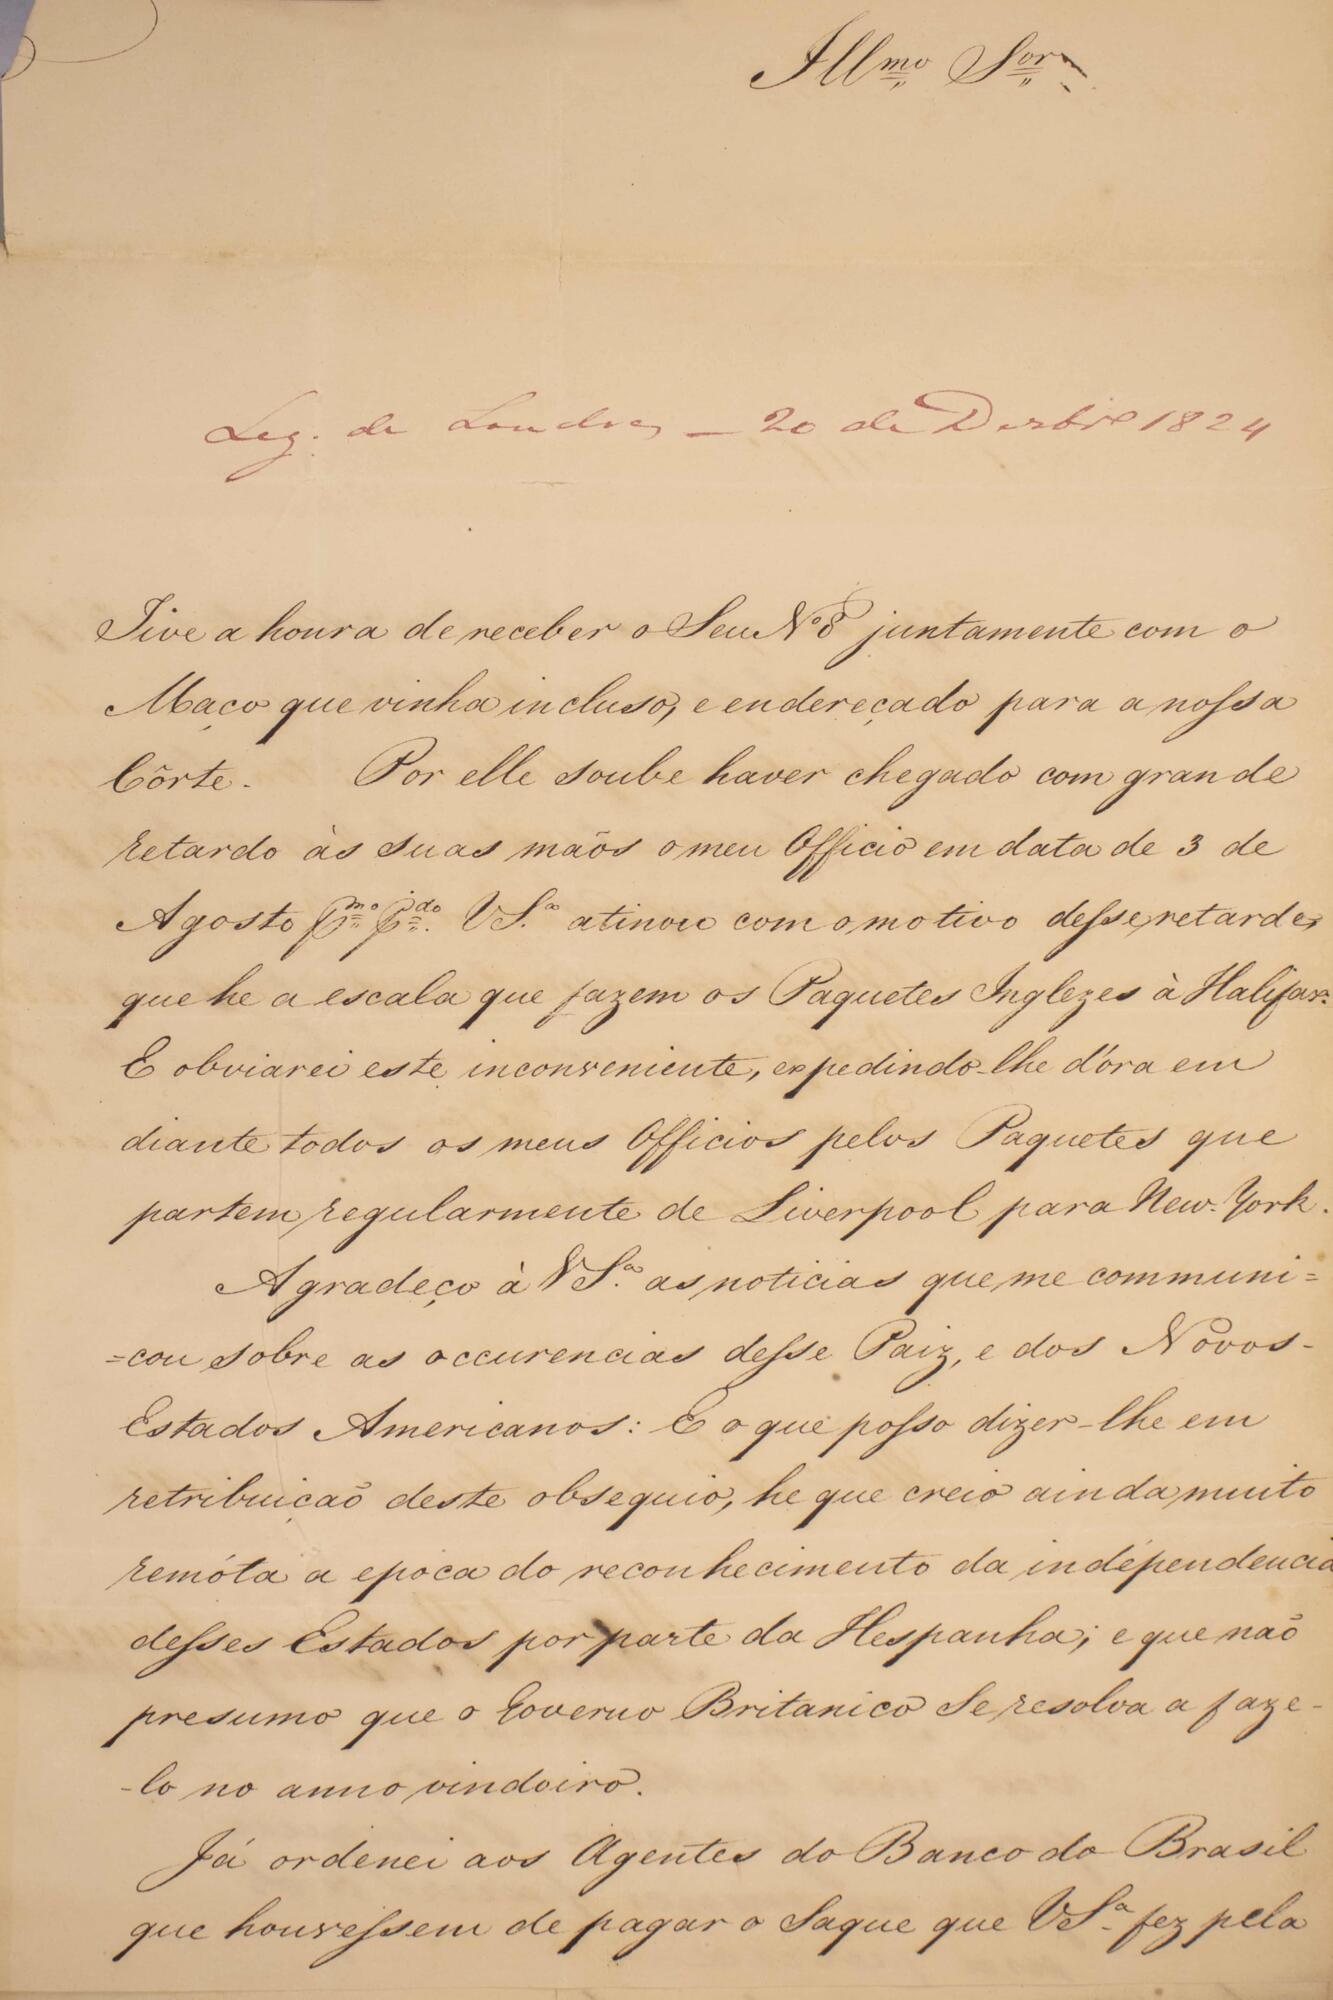 Illmo Sor
Leg. de Londres — 20 de Dezbro 1824
Tive a honra de receber o Seu No 8 juntamente com o
Maço que vinha incluso, e endereçado para a nossa
Côrte. Por elle soube haver chegado com grande
retardo às suas mãos o meu Officio em data de 3 de
Agosto pmo pdo. VSa atinou com o motivo desse retardo,
que he a escala que fazem os Paquetes Inglezes à Halifax.
E obviarei este inconveniente, expedindo-lhe d'ora em
diante todos os meus Officios pelos Paquetes que
partem regularmente de Liverpool para New-York.
Agradeço à VSa as noticias que me communi=
=cou sobre as occurencias desse Paiz, e dos Novos-
Estados Americanos: E o que posso dizer-lhe em
retribuição deste obsequio, he que creio ainda muito
remóta a epoca do reconhecimento da indépendencia
desses Estados por parte da Hespanha; e que não
presumo que o Governo Britanico se resolva a faze-
-lo no anno vindoiro.
Já ordenei aos Agentes do Banco do Brasil
que houvessem de pagar o Saque que VSa fez pela